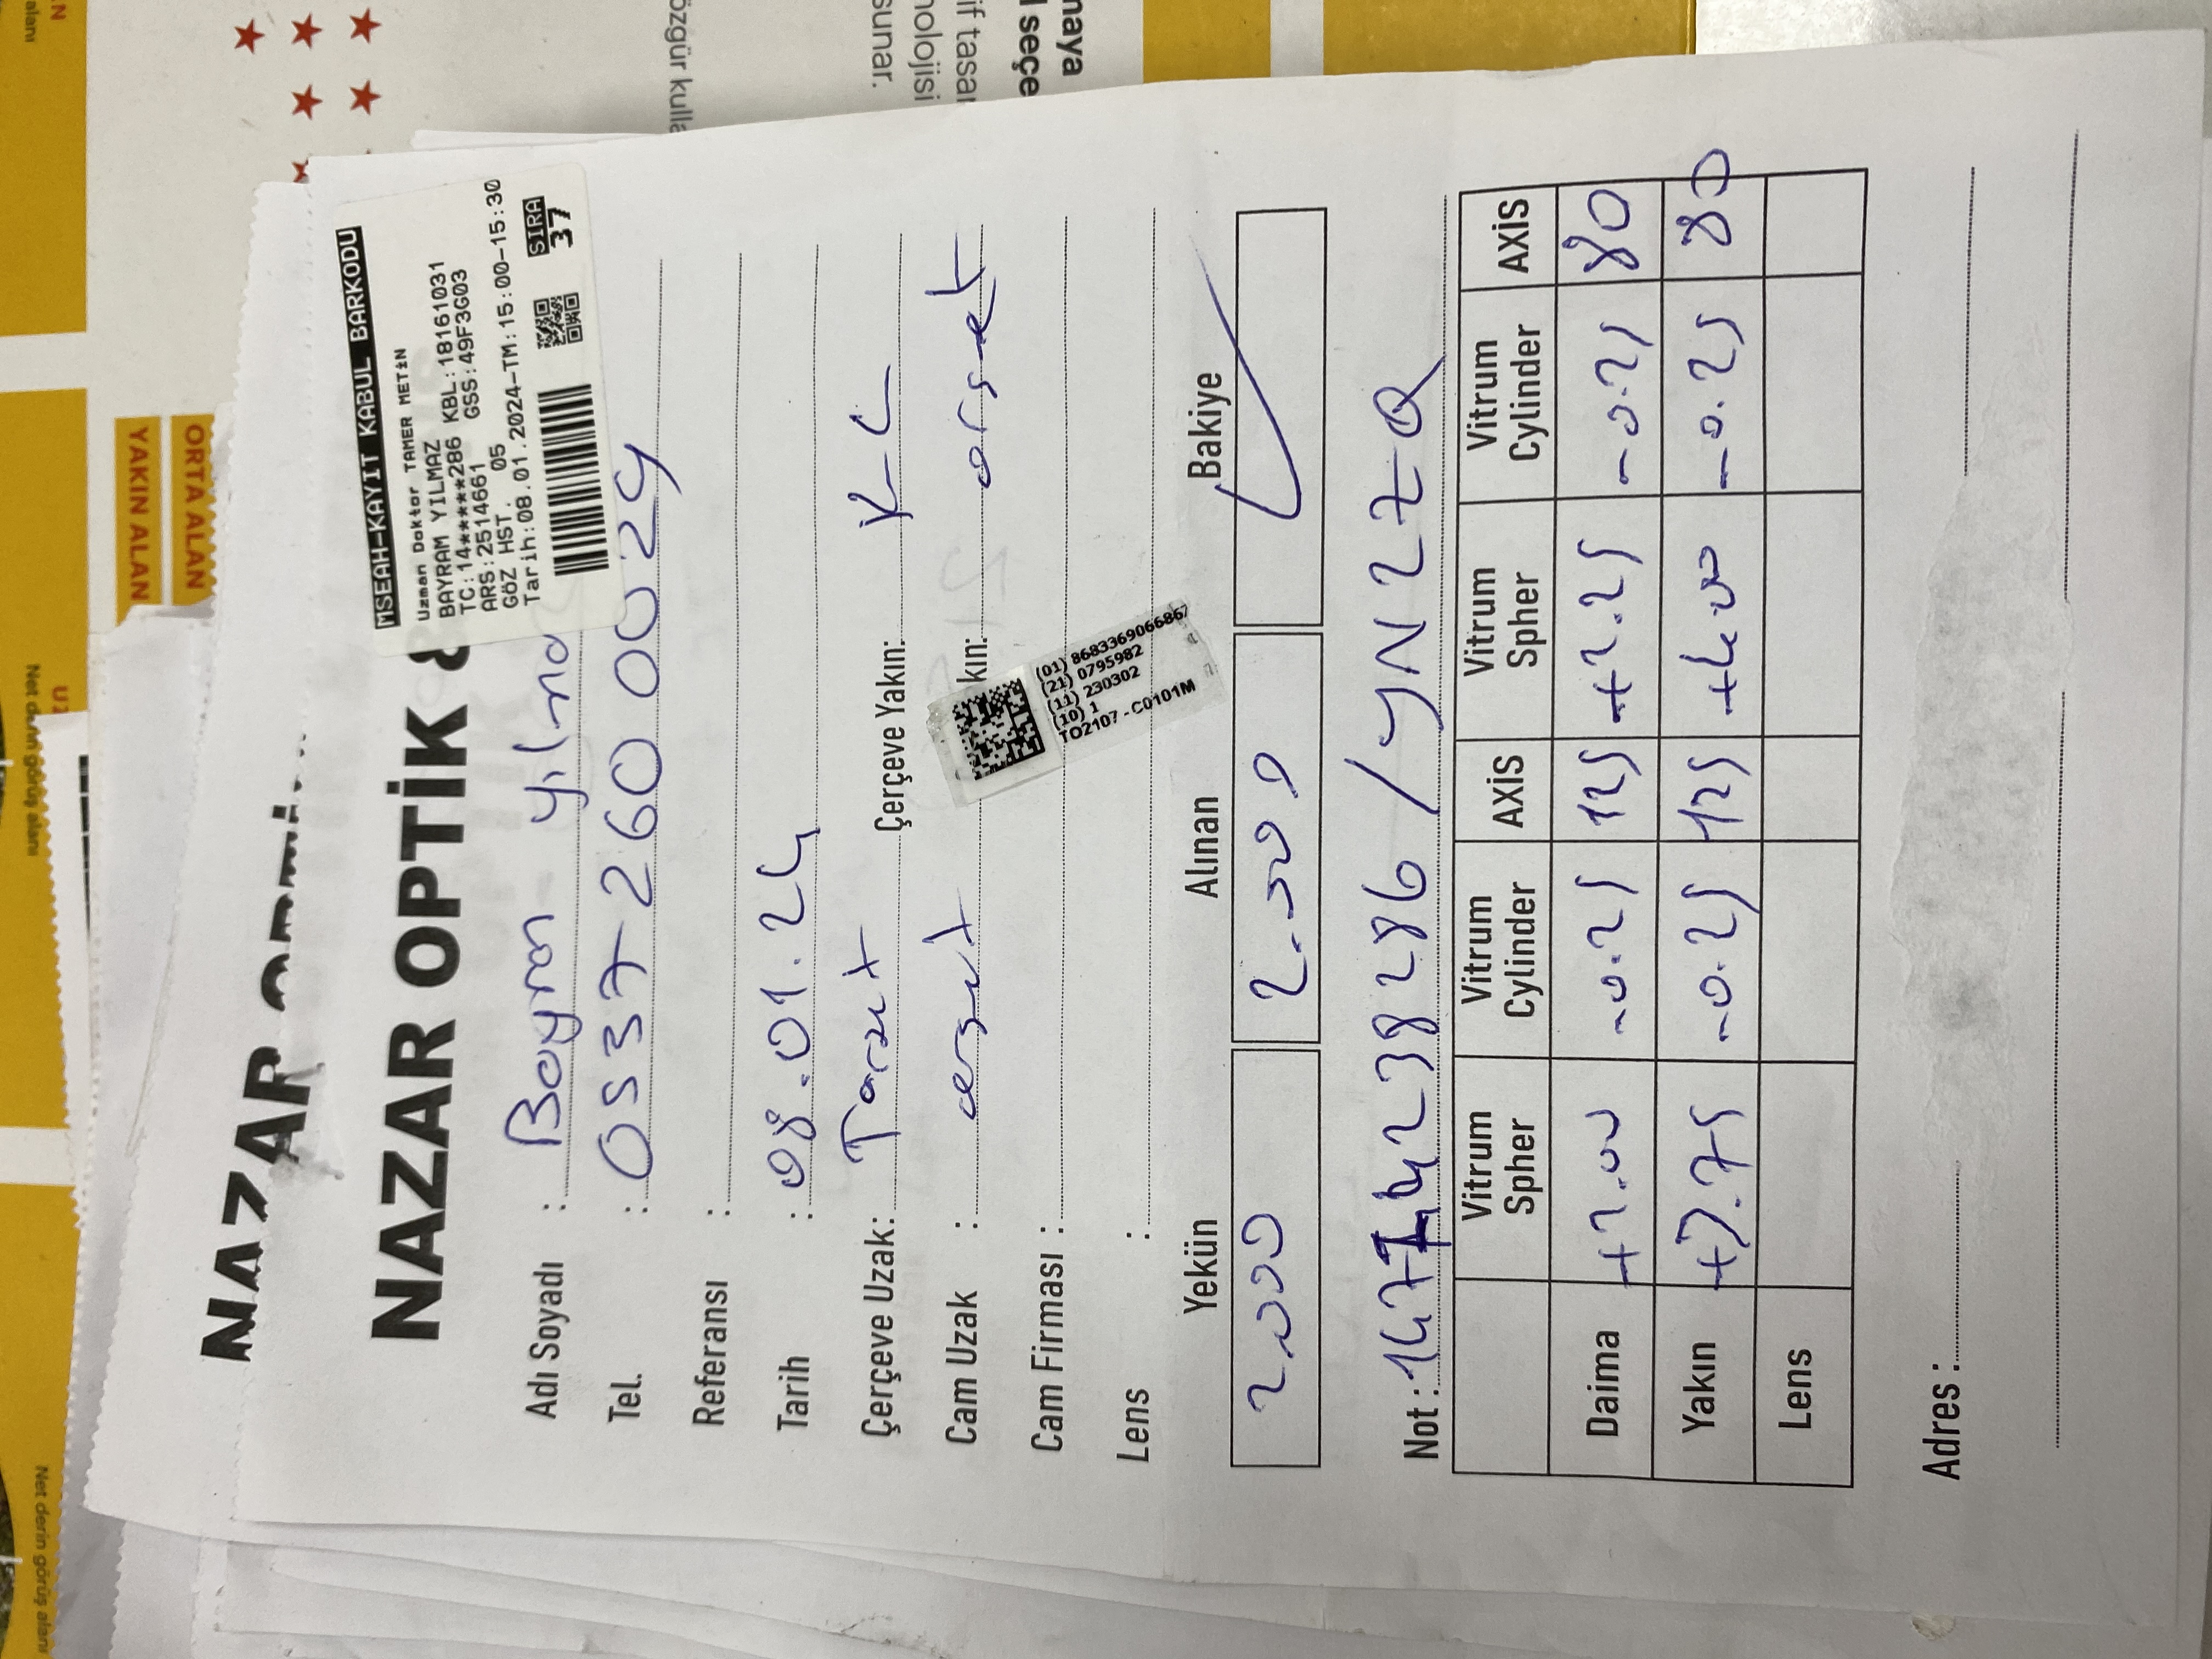 Net derin görüş alanı
Net derin görüş alanı
YAKIN ALAN
ORTA ALAN
NAZAR OPTİK
NAZAR OPTİK &
MSEAH-KAYIT KABUL BARKODU
Uzman Doktor TAMER METİN
BAYRAM YILMAZ
TC:14*****286 KBL:18161031
ARS:2514661 GSS:49F3G03
GÖZ HST. 05
Tarih:08.01.2024-TM:15:00-15:30
SIRA
37
Adı Soyadı : Bayram Yılma
Tel. : 0537 260 0024
Referansı :
Tarih : 08.01.24
Çerçeve Uzak: Çerçeve Yakın:
Cam Uzak : kın:
Cam Firması :
Lens :
(01) 8683369066867
(21) 0795982
(11) 230302
(10) 1
TO2107 - C0101M
Yekün Alınan Bakiye
2.000 2.000
Not : 14714238286 / YN2ZQ
Vitrum Spher Vitrum Cylinder AXİS Vitrum Spher Vitrum Cylinder AXİS
Daima +2.00 -0.25 125 +2.25 -0.25 80
Yakın +3.75 -0.25 125 +4.00 -0.25 80
Lens
Adres :
özgür kulla
sunar.
nolojisi
if tasar
seçe
maya